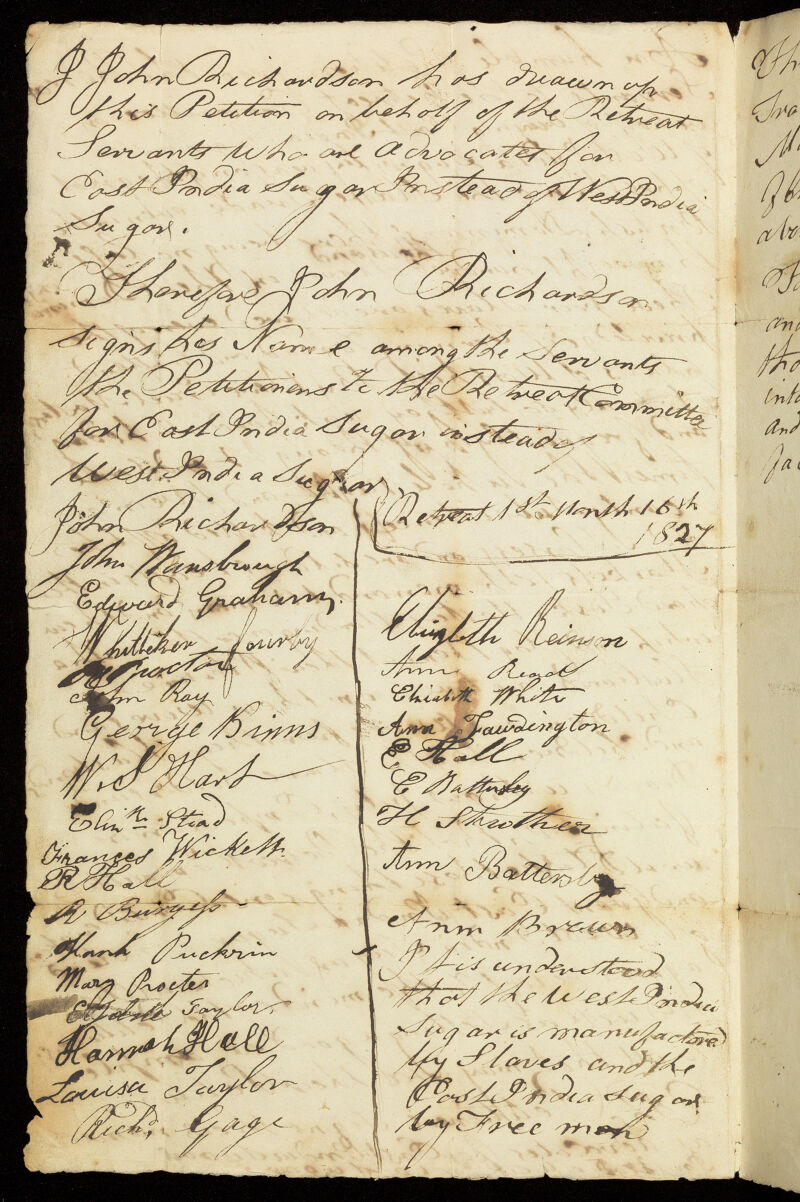 I John Richardson has drawn up
this Petition on behalf of the Retreat
Servants who are advocates for
East India Sugar Instead of West India
Sugar.
Therefore John Richardson
signs his Name among the servants
the Petitioners to the Retreat Committe
for East India Sugar instead of
West India Sugar
Retreat 1st Month 16th
1827
John Richardson
John Wansbrough
Edward Graham
Whitteker
Procter
John Ray
George Binns
W S Hart
Elizth Stead
Frances Wickett
R Hall
R Burgess
Hanh Puckrin
Mary Procter
Taylor
Hannah Hall
Louisa Taylor
Richd Gage
Elizabeth Reinson
Ann Read
Elizabeth White
Ann Fawdington
E Hall
E Battersby
H Strother
Ann Battersby
Ann Brown
It is understood
that the West India
Sugar is manufactored
by Slaves and the
East India Sugar
by Free men